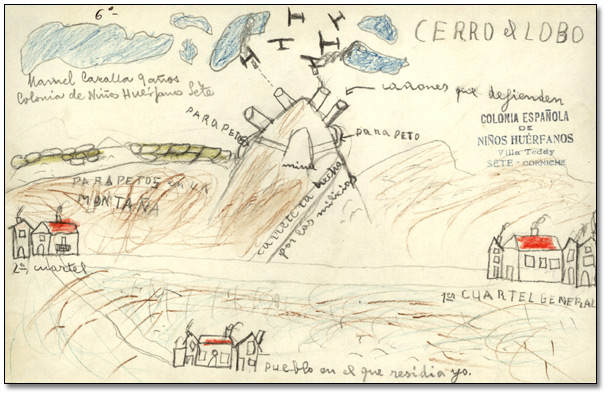 6º
CERRO el LOBO
Manuel Caralla 9 años
Colonia de Niño Huérfano Sete
cañones que defienden
COLONIA ESPAÑOLA
DE
NIÑOS HUÉRFANOS
Villa Teddy
SÈTE - CORNICHE
PARAPETO
PARAPETO
mina
PARAPETOS en un
MONTAÑA
carretera hecha
por las milicias
2º cuartel
1er CUARTEL GENERAL
pueblo en el que residia yo.